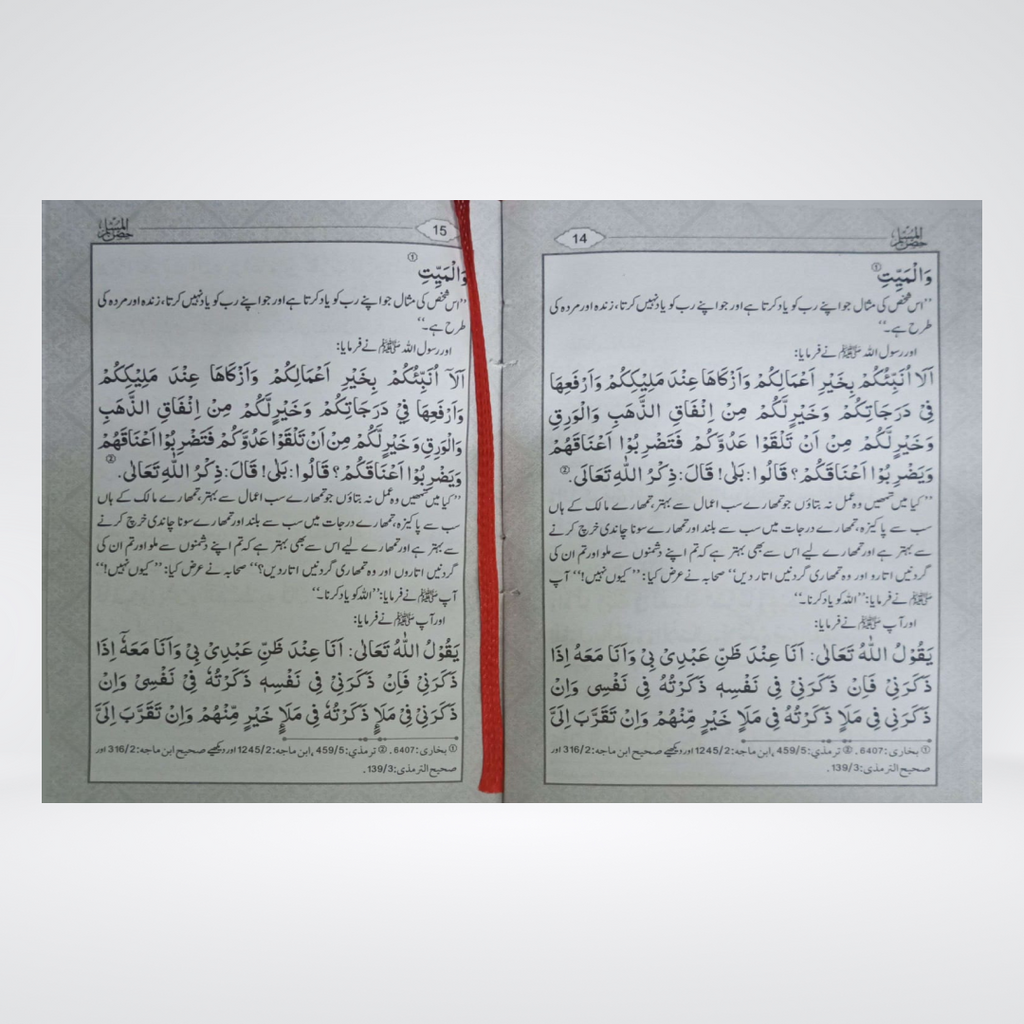 حصن المسلم 14
وَالْمَيِّتِ ①
’’اس شخص کی مثال جو اپنے رب کو یاد کرتا ہے اور جو اپنے رب کو یاد نہیں کرتا، زندہ اور مردہ کی
طرح ہے۔‘‘
اور رسول اللہ ﷺ نے فرمایا:
اَلَا اُنَبِّئُكُمْ بِخَيْرِ اَعْمَالِكُمْ وَاَزْكَاهَا عِنْدَ مَلِيْكِكُمْ وَاَرْفَعِهَا
فِيْ دَرَجَاتِكُمْ وَخَيْرٍ لَّكُمْ مِنْ اِنْفَاقِ الذَّهَبِ وَالْوَرِقِ
وَخَيْرٍ لَّكُمْ مِنْ اَنْ تَلْقَوْا عَدُوَّكُمْ فَتَضْرِبُوْا اَعْنَاقَهُمْ
وَيَضْرِبُوْا اَعْنَاقَكُمْ؟ قَالُوا: بَلٰى! قَالَ: ذِكْرُ اللّٰهِ تَعَالَى. ②
’’کیا میں تمھیں وہ عمل نہ بتاؤں جو تمھارے سب اعمال سے بہتر، تمھارے مالک کے ہاں
سب سے پاکیزہ، تمھارے درجات میں سب سے بلند اور تمھارے سونا چاندی خرچ کرنے
سے بہتر ہے اور تمھارے لیے اس سے بھی بہتر ہے کہ تم اپنے دشمنوں سے ملو اور تم ان کی
گردنیں اتارو اور وہ تمھاری گردنیں اتار دیں‘‘ صحابہ نے عرض کیا: ’’کیوں نہیں!‘‘ آپ
ﷺ نے فرمایا: ’’اللہ کو یاد کرنا۔‘‘
اور آپ ﷺ نے فرمایا:
يَقُوْلُ اللّٰهُ تَعَالٰى: اَنَا عِنْدَ ظَنِّ عَبْدِيْ بِيْ وَاَنَا مَعَهُ اِذَا
ذَكَرَنِيْ فَاِنْ ذَكَرَنِيْ فِيْ نَفْسِهٖ ذَكَرْتُهُ فِيْ نَفْسِيْ وَاِنْ
ذَكَرَنِيْ فِيْ مَلَاٍ ذَكَرْتُهُ فِيْ مَلَاٍ خَيْرٍ مِّنْهُمْ وَاِنْ تَقَرَّبَ اِلَيَّ
① بخاری: 6407۔ ② ترمذی: 459/5، ابن ماجہ: 1245/2 اور دیکھیے صحیح ابن ماجہ: 316/2 اور
صحیح الترمذی: 139/3۔
حصن المسلم 15
وَالْمَيِّتِ ①
’’اس شخص کی مثال جو اپنے رب کو یاد کرتا ہے اور جو اپنے رب کو یاد نہیں کرتا، زندہ اور مردہ کی
طرح ہے۔‘‘
اور رسول اللہ ﷺ نے فرمایا:
اَلَآ اُنَبِّئُكُمْ بِخَيْرِ اَعْمَالِكُمْ وَاَزْكَاهَا عِنْدَ مَلِيْكِكُمْ
وَاَرْفَعِهَا فِيْ دَرَجَاتِكُمْ وَخَيْرٍ لَّكُمْ مِنْ اِنْفَاقِ الذَّهَبِ
وَالْوَرِقِ وَخَيْرٍ لَّكُمْ مِنْ اَنْ تَلْقَوْا عَدُوَّكُمْ فَتَضْرِبُوْا اَعْنَاقَهُمْ
وَيَضْرِبُوْا اَعْنَاقَكُمْ؟ قَالُوا: بَلٰى! قَالَ: ذِكْرُ اللّٰهِ تَعَالٰى. ②
’’کیا میں تمھیں وہ عمل نہ بتاؤں جو تمھارے سب اعمال سے بہتر، تمھارے مالک کے ہاں
سب سے پاکیزہ، تمھارے درجات میں سب سے بلند اور تمھارے سونا چاندی خرچ کرنے
سے بہتر ہے اور تمھارے لیے اس سے بھی بہتر ہے کہ تم اپنے دشمنوں سے ملو اور تم ان کی
گردنیں اتاروں اور وہ تمھاری گردنیں اتار دیں؟‘‘ صحابہ نے عرض کیا: ’’کیوں نہیں!‘‘
آپ ﷺ نے فرمایا: ’’اللہ کو یاد کرنا۔‘‘
اور آپ ﷺ نے فرمایا:
يَقُوْلُ اللّٰهُ تَعَالٰى: اَنَا عِنْدَ ظَنِّ عَبْدِيْ بِيْ وَاَنَا مَعَهٗٓ اِذَا
ذَكَرَنِيْ فَاِنْ ذَكَرَنِيْ فِيْ نَفْسِهٖ ذَكَرْتُهٗ فِيْ نَفْسِيْ وَاِنْ
ذَكَرَنِيْ فِيْ مَلَاٍ ذَكَرْتُهٗ فِيْ مَلَاٍ خَيْرٍ مِّنْهُمْ وَاِنْ تَقَرَّبَ اِلَيَّ
① بخاری: 6407۔ ② ترمذی: 459/5، ابن ماجہ: 1245/2 اور دیکھیے صحیح ابن ماجہ: 316/2 اور
صحیح الترمذی: 139/3۔